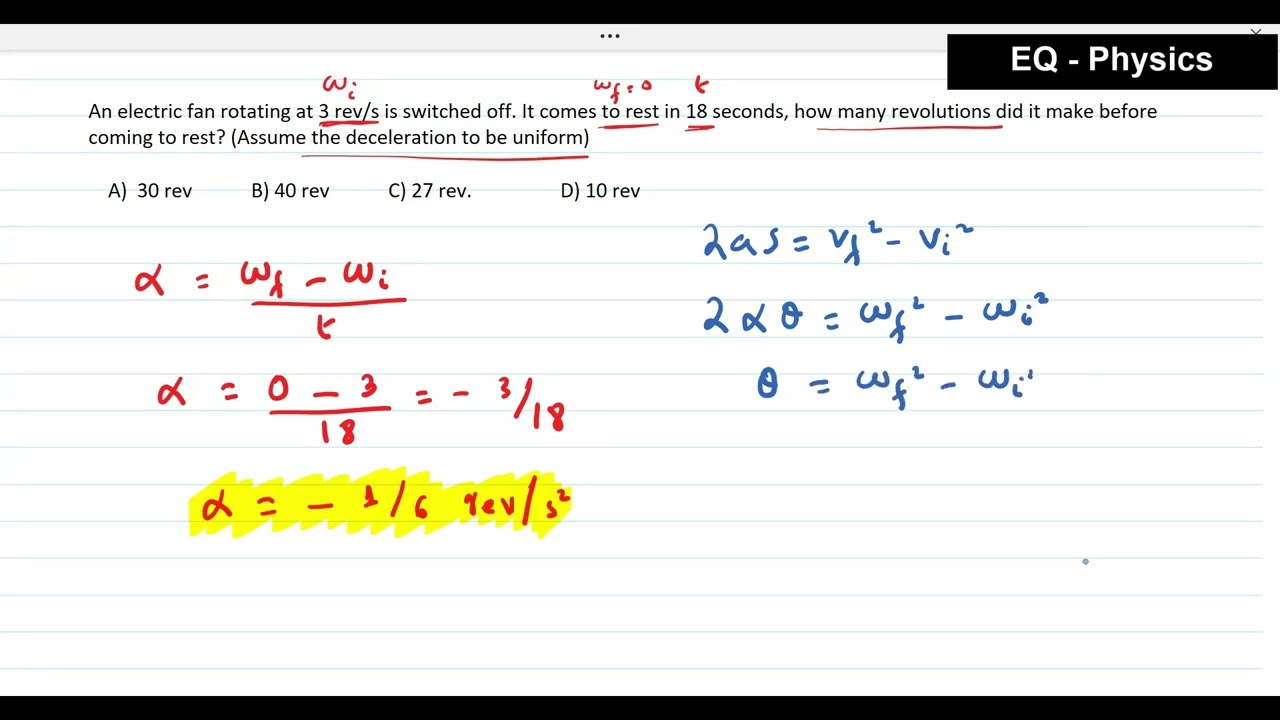 ...
EQ - Physics
ωi ωf = 0 t
An electric fan rotating at 3 rev/s is switched off. It comes to rest in 18 seconds, how many revolutions did it make before
coming to rest? (Assume the deceleration to be uniform)
A) 30 rev B) 40 rev C) 27 rev. D) 10 rev
α = ωf - ωi / t
α = 0 - 3 / 18 = - 3/18
α = - 1/6 rev/s²
2as = vf² - vi²
2αθ = ωf² - ωi²
θ = ωf² - ωi